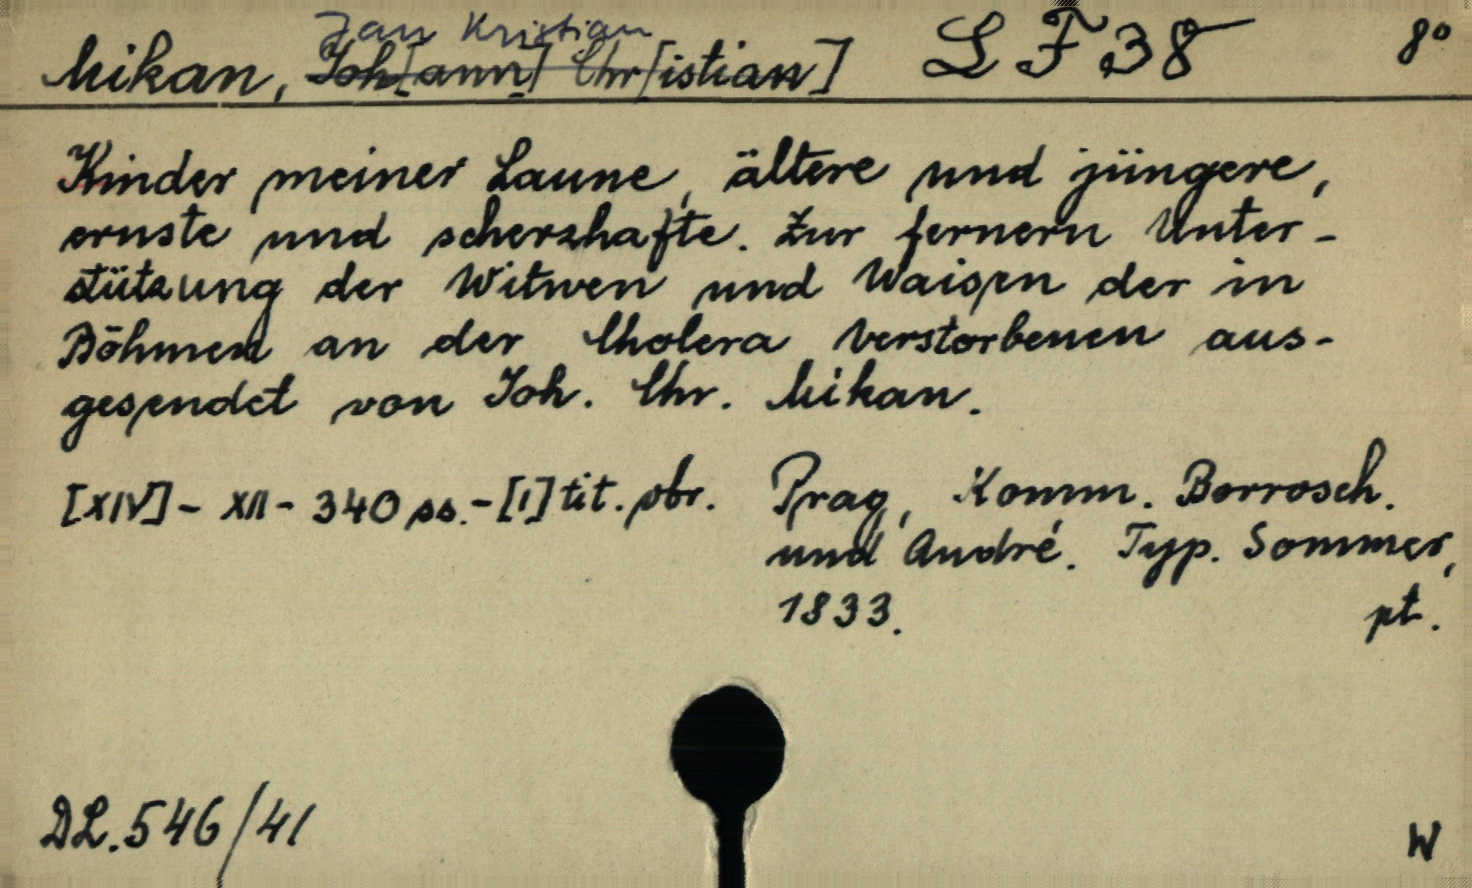 Jan Kristian
Mikan, Joh[ann] Chr[istian] L F 38 8°
Kinder meiner Laune, ältere und jüngere,
ernste und scherzhafte. Zur fernern Unter-
stützung der Witwen und Waisen der in
Böhmen an der Cholera Verstorbenen aus-
gesendet von Joh. Chr. Mikan.
[XIV] - XII - 340 ss. - [1] tit. obr. Prag, Komm. Borrosch.
und André. Typ. Sommer,
1833. pt.
DL. 546/41 W